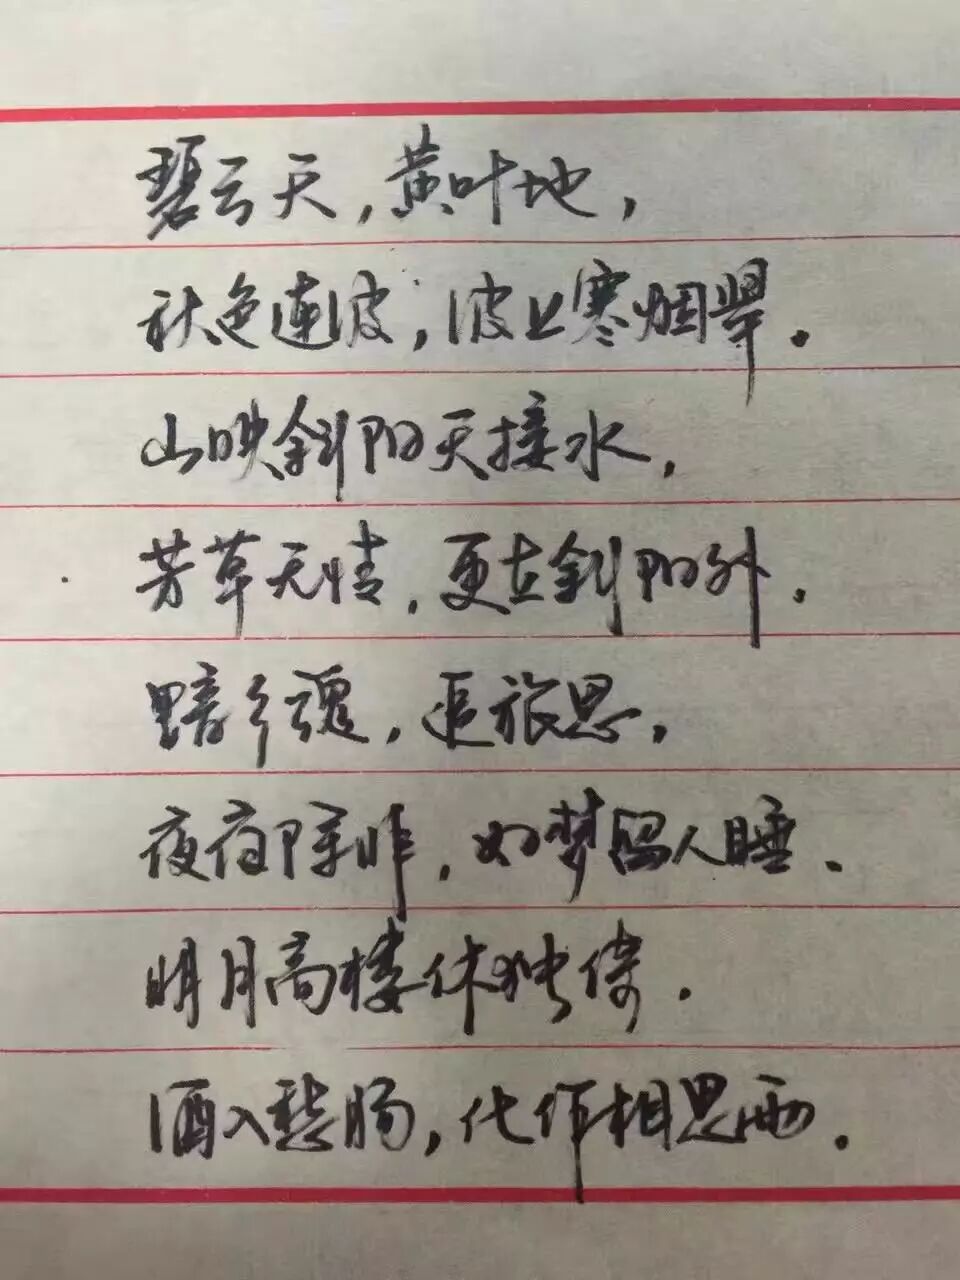 碧云天，黄叶地，
秋色连波，波上寒烟翠。
山映斜阳天接水，
芳草无情，更在斜阳外。
黯乡魂，追旅思，
夜夜除非，如梦留人睡。
明月高楼休独倚。
酒入愁肠，化作相思雨。